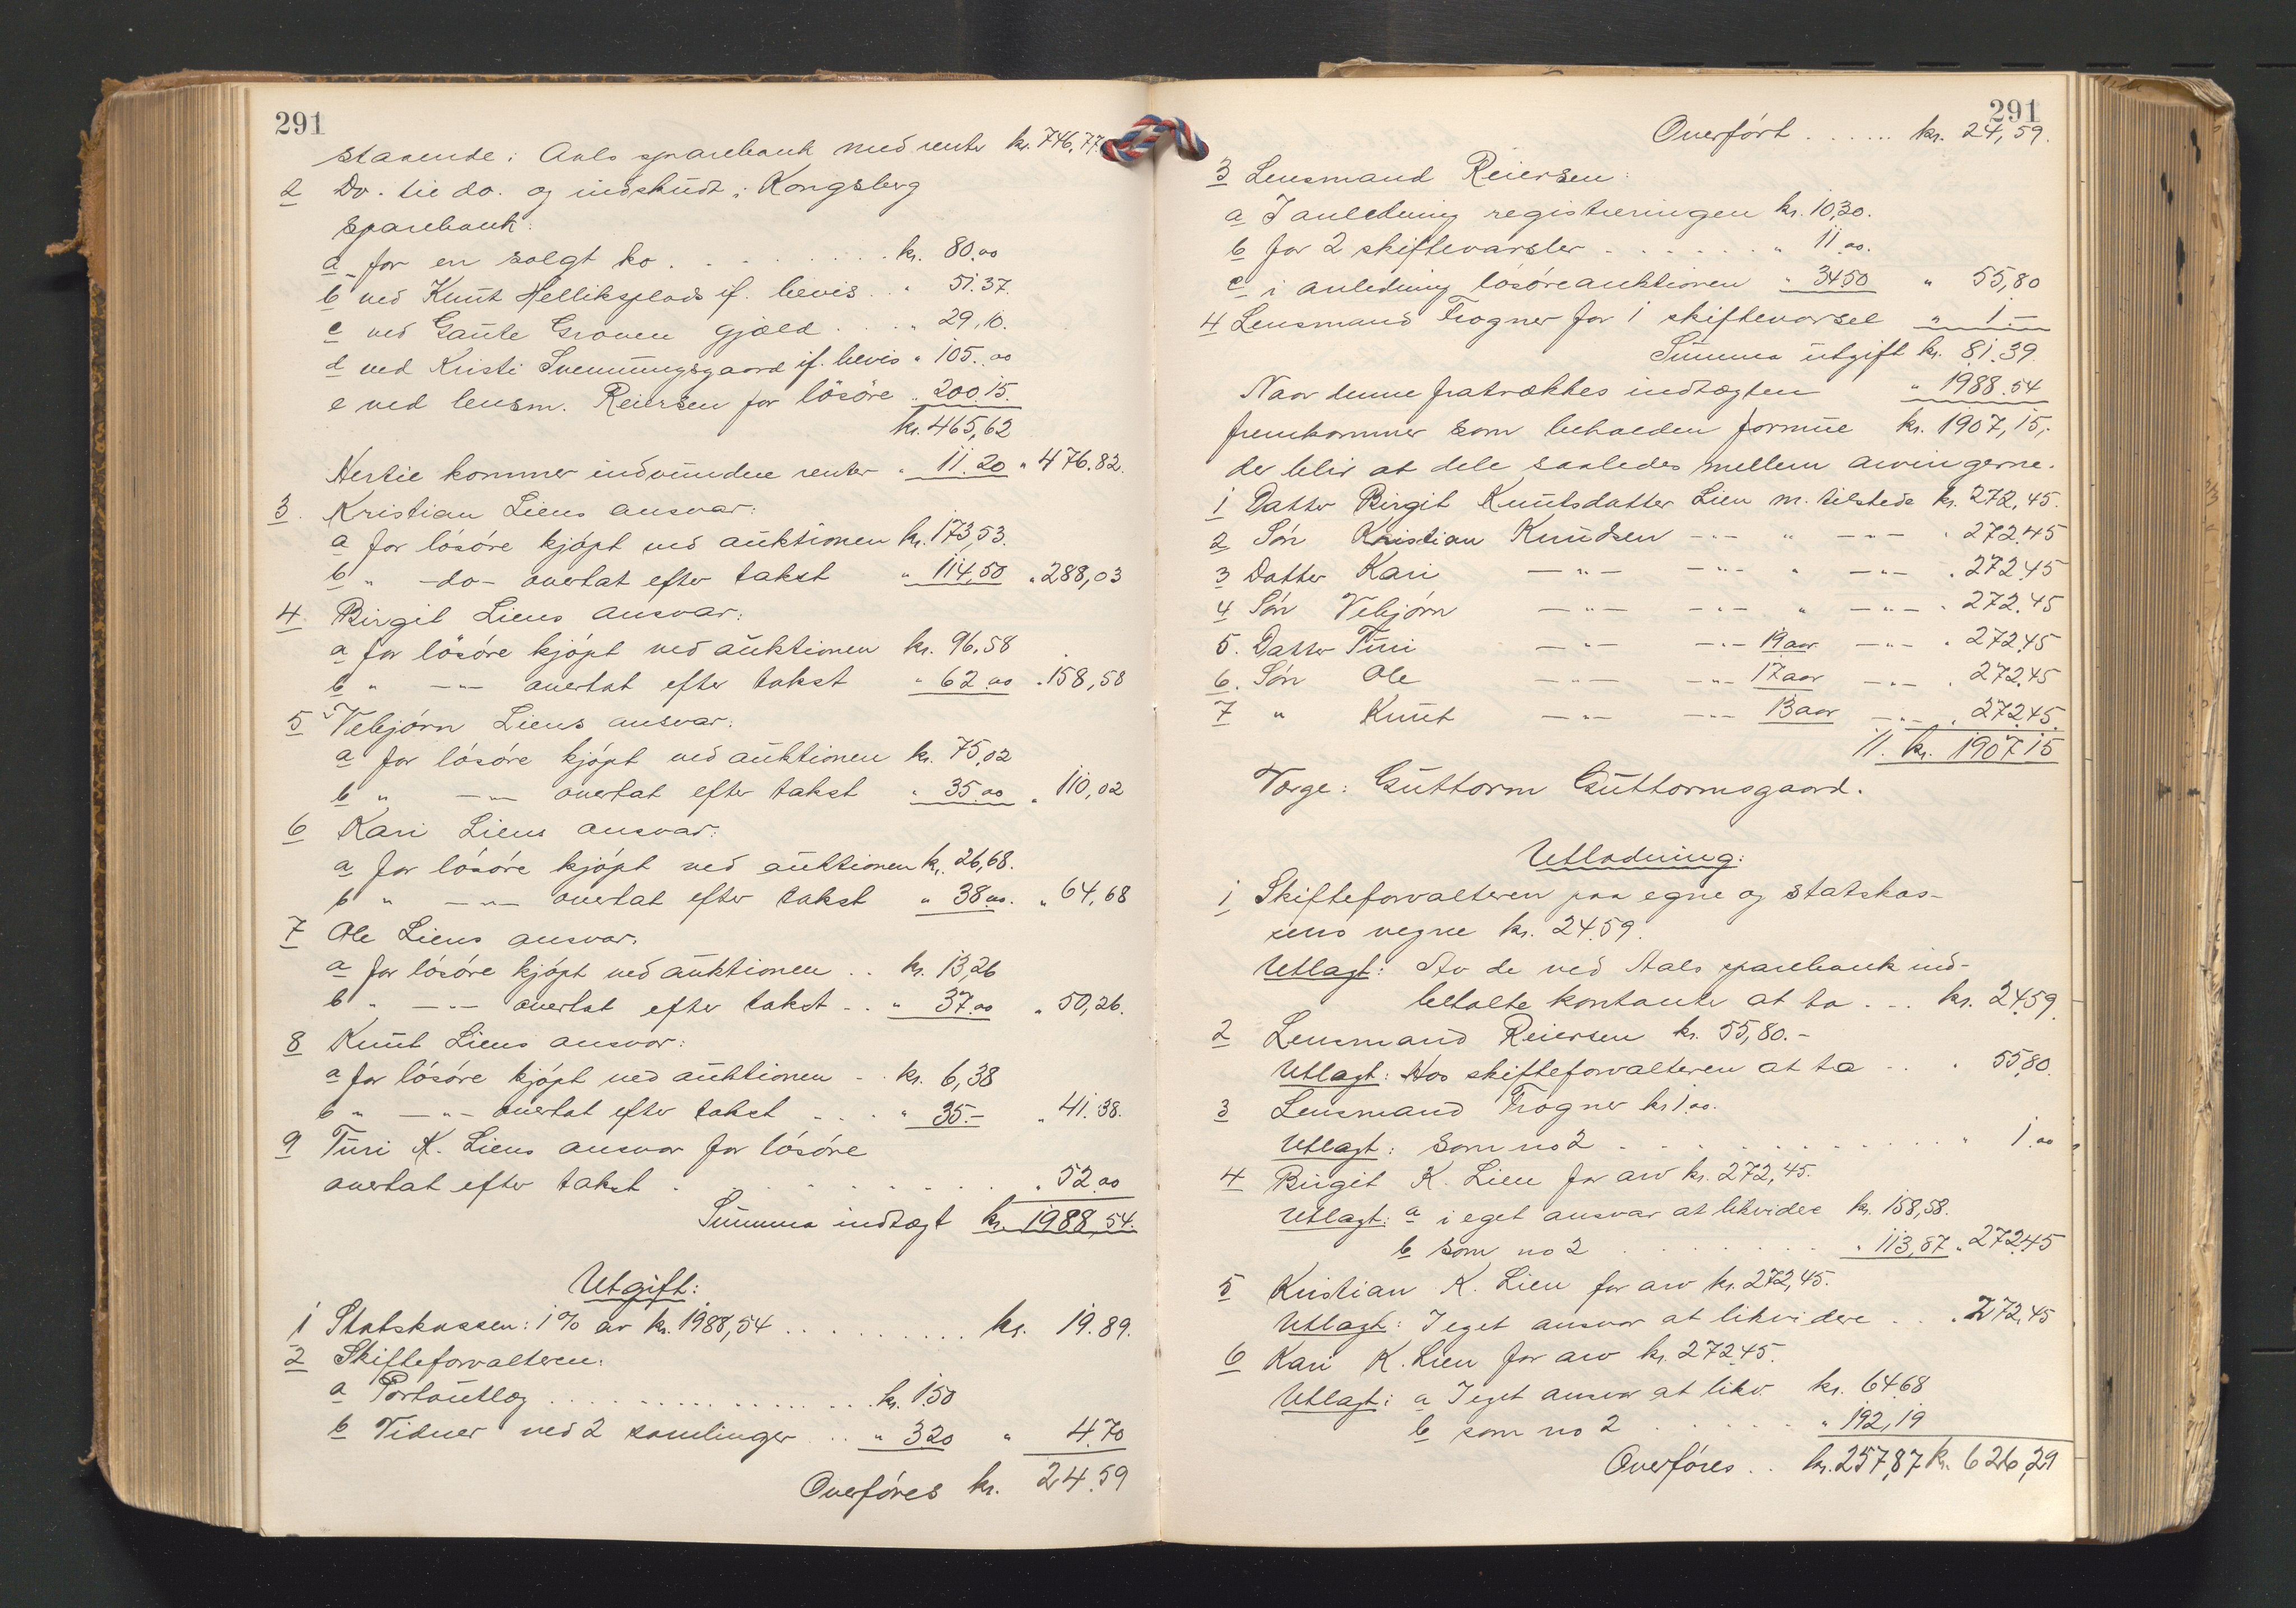 291
staaende i Aals sparebank med renter kr. 746,77
2 Do. til do. og indskudt i Kongsberg
sparebank:
a for en solgt ko . . . . . . . . kr. 80.00
b ved Knut Helliksplads if. bevis . . " 51.37.
c ved Gaute Groven gjæld . . . . " 29.10.
d ved Kristi Svenningsgaard if. bevis " 105.00
e ved lensm. Reiersen for løsøre .. 200.15.
kr. 465,62
Hertil kommer indvundne renter " 11.20 " 476.82.
3. Kristian Liens ansvar:
a for løsøre kjøpt ved auktionen kr. 173,53.
b " -do- overtat efter takst " 114,50 " 288,03
4 Birgit Liens ansvar:
a for løsøre kjøpt ved auktionen kr. 96.58
b " -"- overtat efter takst " 62.00 . 158,58
5 Vebjørn Liens ansvar:
a for løsøre kjøpt ved auktionen kr. 75,02
b " -"- overtat efter takst " 35.00 " 110,02
6 Kari Liens ansvar:
a for løsøre kjøpt ved auktionen kr. 26,68.
b " -"- overtat efter takst " 38.00. " 64,68
7 Ole Liens ansvar.
a for løsøre kjøpt ved auktionen . . kr. 13,26
b " -"- overtat efter takst . . " 37.00 " 50,26.
8 Knut Liens ansvar:
a for løsøre kjøpt ved auktionen . . kr. 6,38
b " -"- overtat efter takst . . . " 35.- " 41.38.
9 Turi K. Liens ansvar for løsøre
overtat efter takst . . . . . . . . . " 52.00
Summa indtægt kr. 1988,54.
Utgift:
1 Statskassen: 1% av kr. 1988,54 . . . . . . . . . kr. 19.89.
2 Skifteforvalteren:
a Portoutlæg . . . . . . . . . . . . . kr. 1.50
b Vidner ved 2 samlinger . . " 3.20 " 4.70
Overføres kr. 24.59
291
Overført . . . . . . kr. 24,59.
3 Lensmand Reiersen:
a I anledning registreringen kr. 10,30.
b for 2 skiftevarsler . . . . . . . " 11.00.
c i anledning løsøreauktionen " 34.50 " 55,80
4 Lensmand Frogner for 1 skiftevarsel " 1.-
Summa utgift kr. 81.39.
Naar denne fratrækkes indtægten " 1988.54
fremkommer som beholden formue kr. 1907,15,-
der blir at dele saaledes mellem arvingerne.
1 Datter Birgit Knutsdatter Lien m. tilstede kr. 272,45.
2 Søn Kristian Knudsen -"- " -"- . 272.45
3 Datter Kari -"- -"- " -"- . 272.45
4 Søn Vebjørn -"- -"- " -"- . 272.45
5. Datter Turi -"- -"- 19 aar -"- . 272.45
6. Søn Ole -"- -"- 17 aar -"- . 272.45
7 " Knut -"- -"- 13 aar -"- . 272.45.
11. kr. 1907.15
Verge: Guttorm Guttormsgaard.
Utlodning:
1 Skifteforvalteren paa egne og statskas-
sens vegne kr. 24.59.
Utlagt: Av de ved Aals sparebank ind-
betalte kontanter at ta . . . kr. 24.59.
2 Lensmand Reiersen kr. 55,80.-
Utlagt: Hos skifteforvalteren at ta . . . 55.80.
3 Lensmand Frogner kr 1.00.
Utlagt: Som no 2 . . . . . . . . . . . . " 1.00
4 Birgit K. Lien for arv kr. 272,45.
Utlagt: a i eget ansvar at likvidere kr. 158,58.
b som no 2 . . . . . . . " 113,87 " 272.45
5 Kristian K. Lien for arv kr. 272,45.
Utlagt: I eget ansvar at likvidere . . . 272,45
6 Kari K. Lien for arv kr. 272.45.
Utlagt: a I eget ansvar at likv. kr. 64.68
b som no 2 . . . . . . " 192,19
Overføres . . kr. 257,87 kr. 626,29